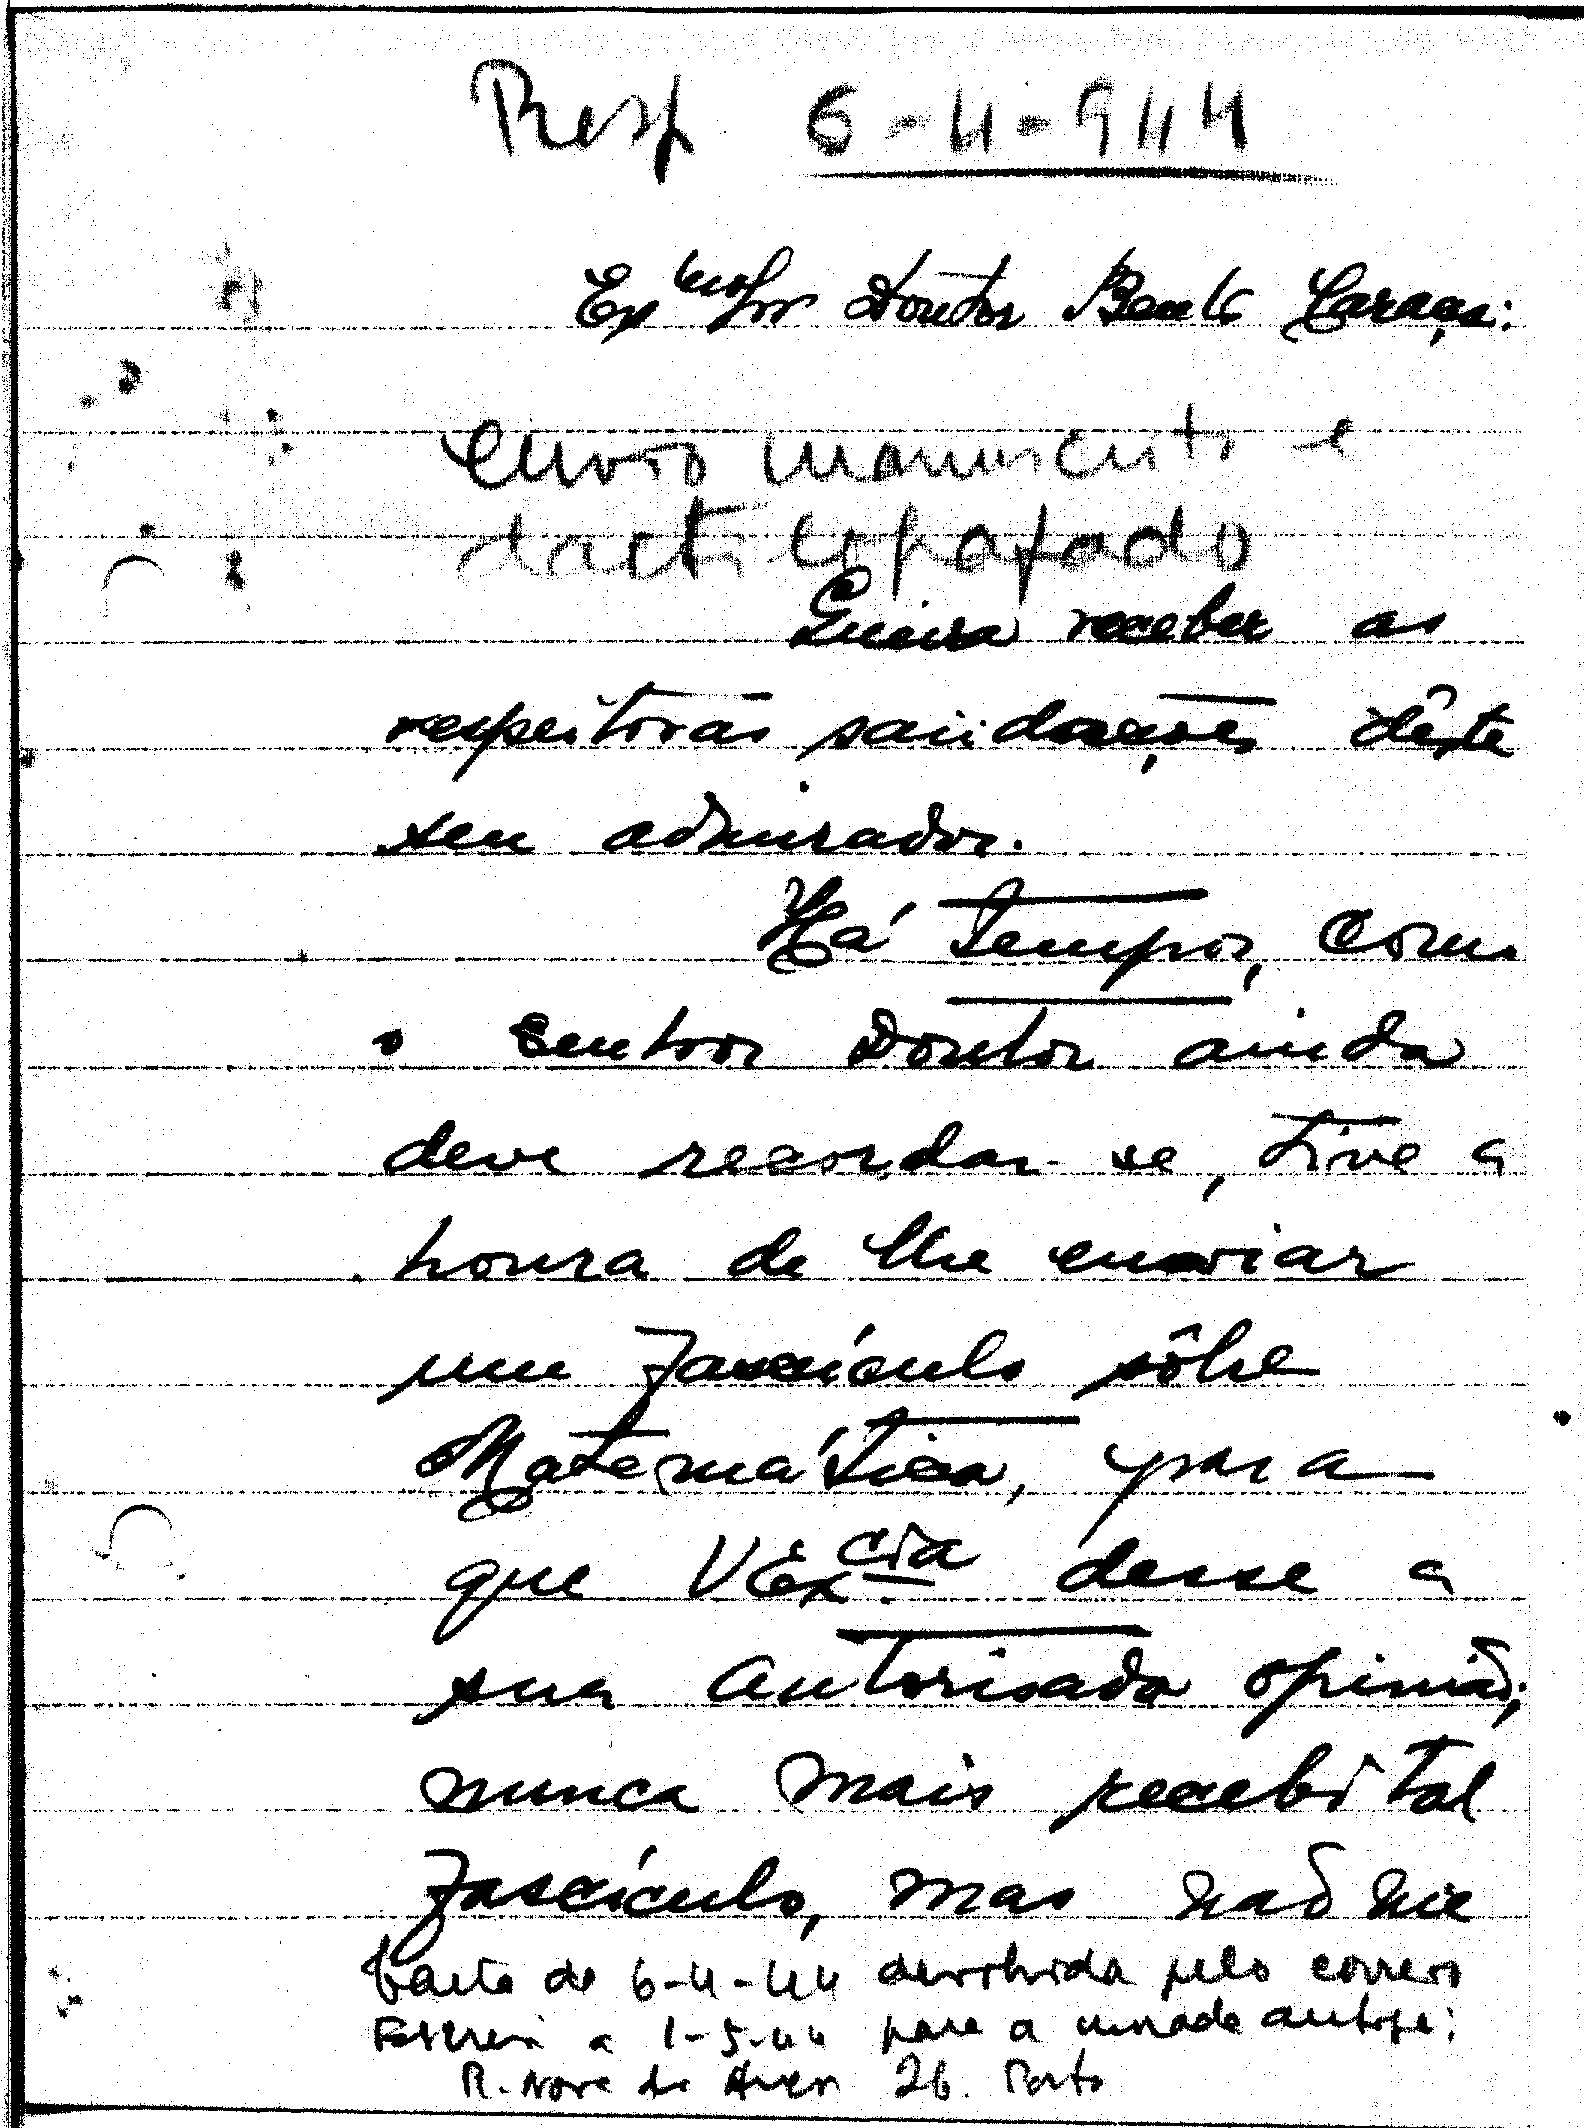 Resp 6-4-944
Ex.mo Snr Doutor Bento Caraça:
envio manuscrito e
dactilografado
Queira receber as
respeitosas saüdações dêste
seu admirador.
Há tempos, como
o Senhor Doutor ainda
deve recordar-se, tive a
honra de lhe enviar
um fascículo sôbre
Matemática, para
que V Ex.cia desse a
sua autorisada opinião;
nunca mais recebi tal
fascículo, mas não me
Carta de 6-4-44 devolvida pelo correio
Escrevi a 1-5-44 para a morada antiga:
R. Nova de 26. Porto